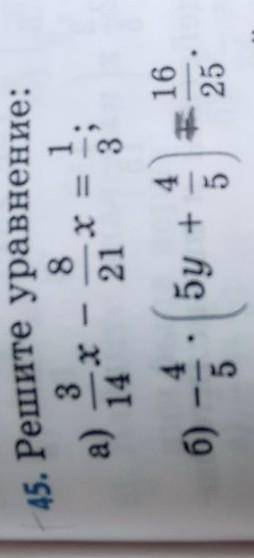 45. Решите уравнение:
а) 3/14 x − 8/21 x = 1/3;
б) −4/5 · (5y + 4/5) = 16/25.